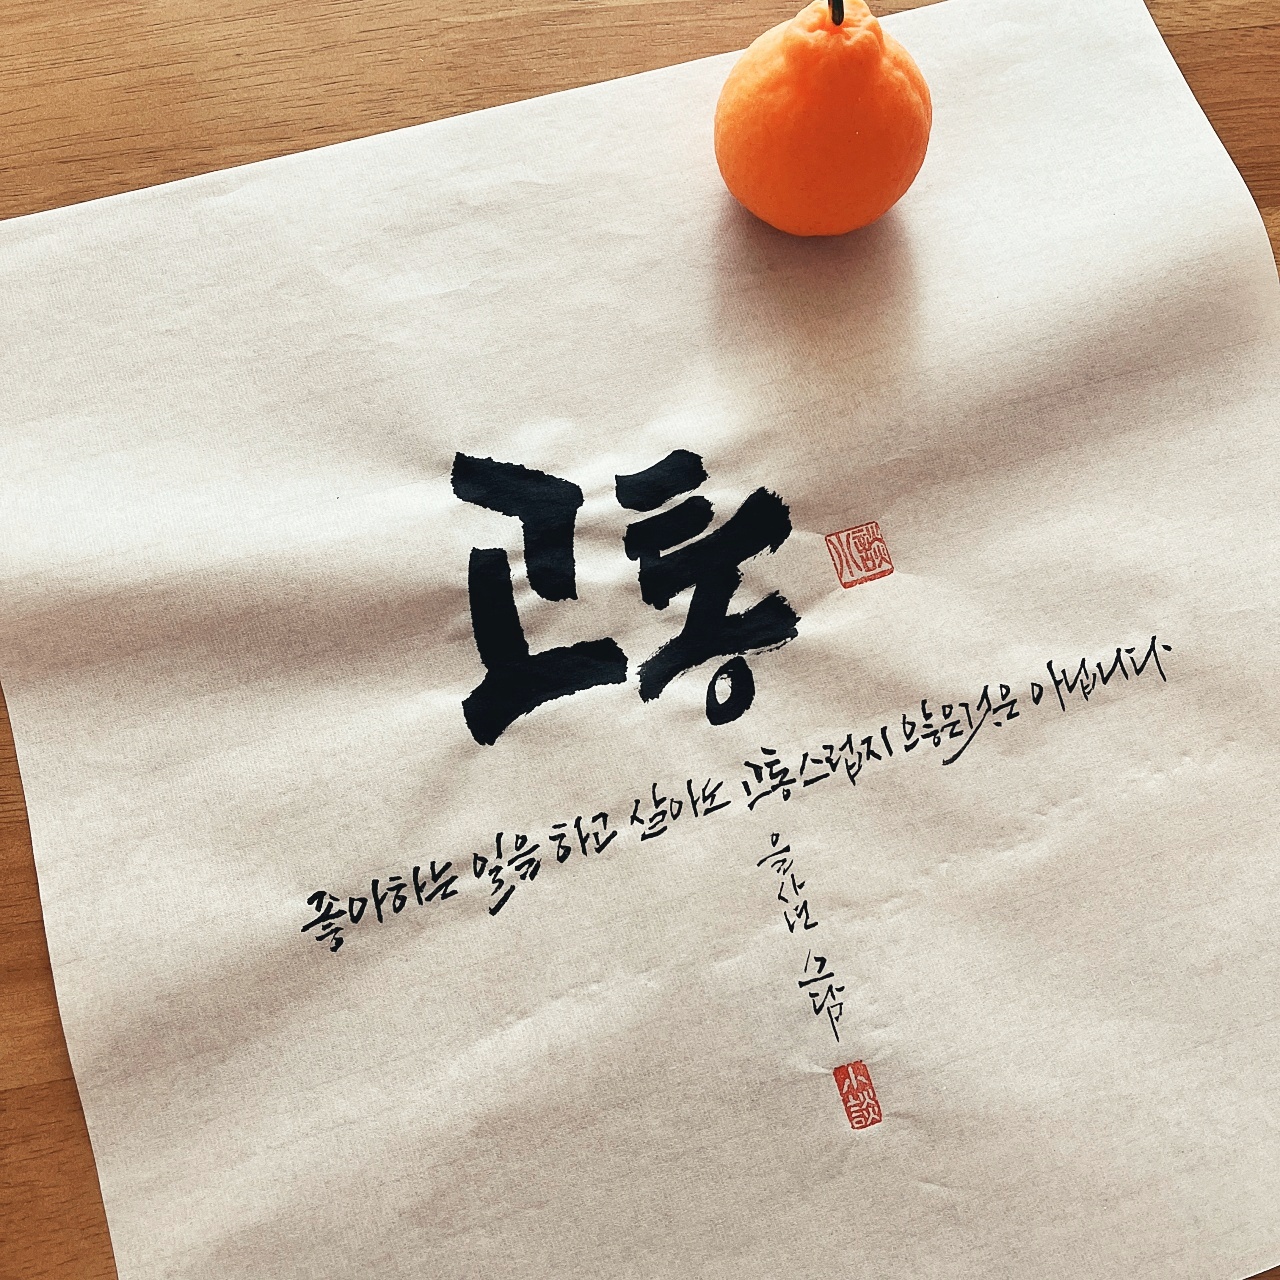 고통
小談
좋아하는 일을 하고 살아도 고통스럽지 않은것은 아닙니다.
을사년
소담
小談